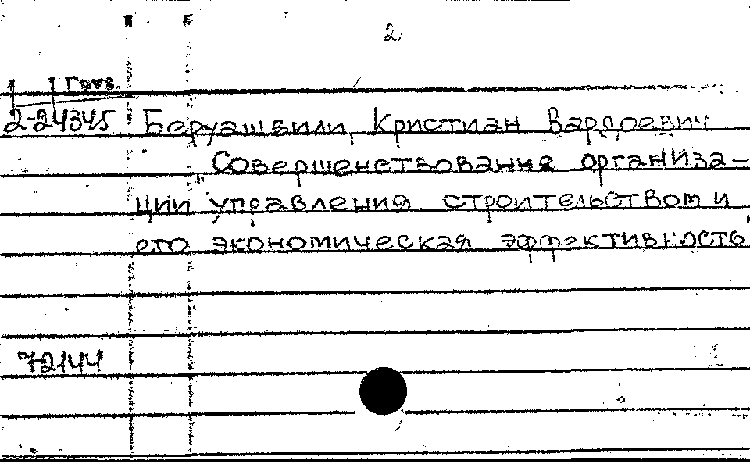 2
2-24345 Беруашвили, Кристиан Вардоевич
Совершенствование организа-
ции управления строительством и
его экономическая эффективность
72144